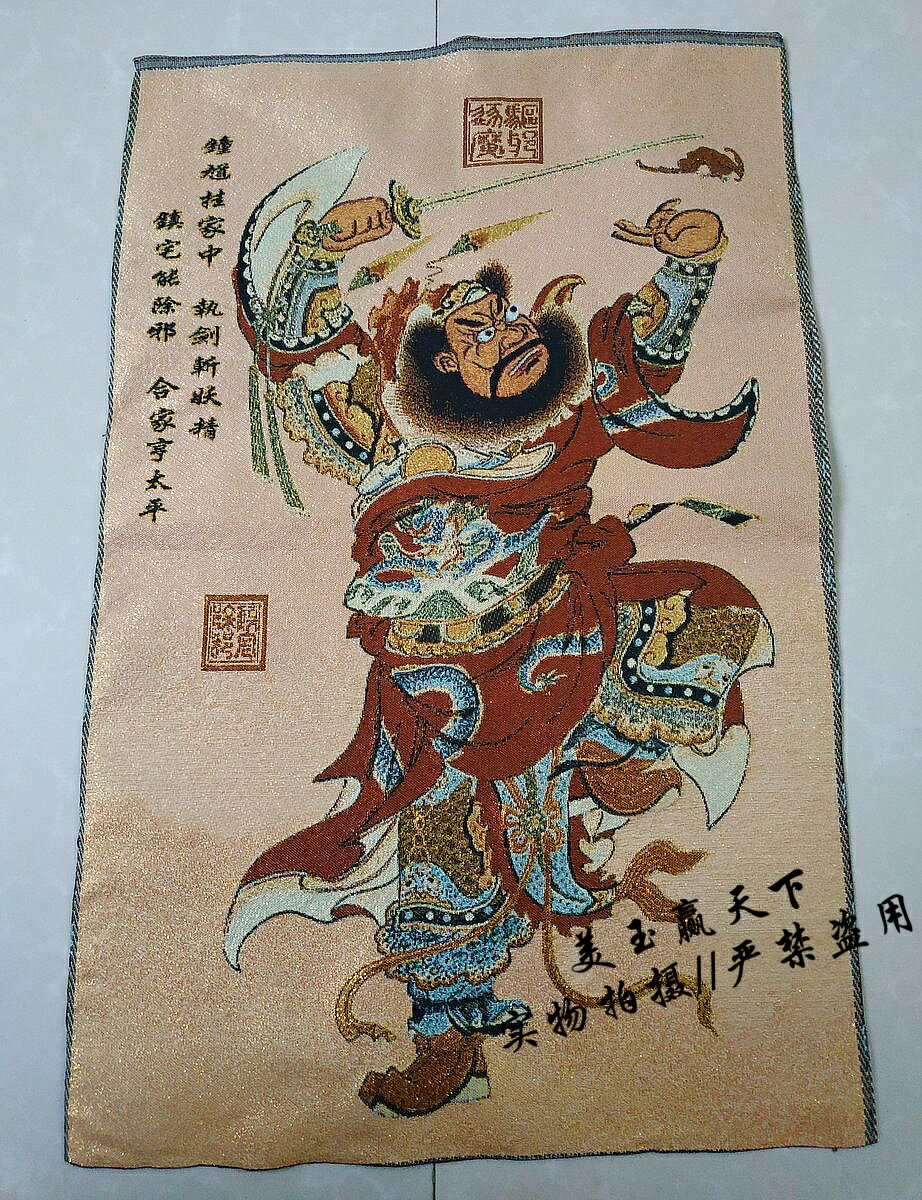 驅邪
逐魔
鍾馗挂家中 執劍斬妖精
鎮宅能除邪 合家亨太平
鎮宅
除邪
美玉赢天下
实物拍摄//严禁盗用